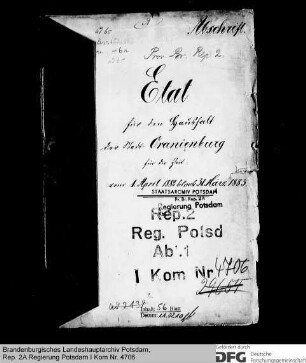 Abschrift.
Pr. Br. Rep. 2.
Etat
für den Haushalt
der Stadt Oranienburg
für die Zeit
vom 1. April 1882 bis 31. März 1883
STAATSARCHIV POTSDAM
Pr. Br. Rep. 2A
Regierung Potsdam
Rep. 2
Reg. Potsd
Abt. I
I Kom Nr. 4706
Inhalt: 56 Blatt
Brandenburgisches Landeshauptarchiv Potsdam,
Rep. 2A Regierung Potsdam I Kom Nr. 4706
Gefördert durch
DFG
Deutsche
Forschungsgemeinschaft